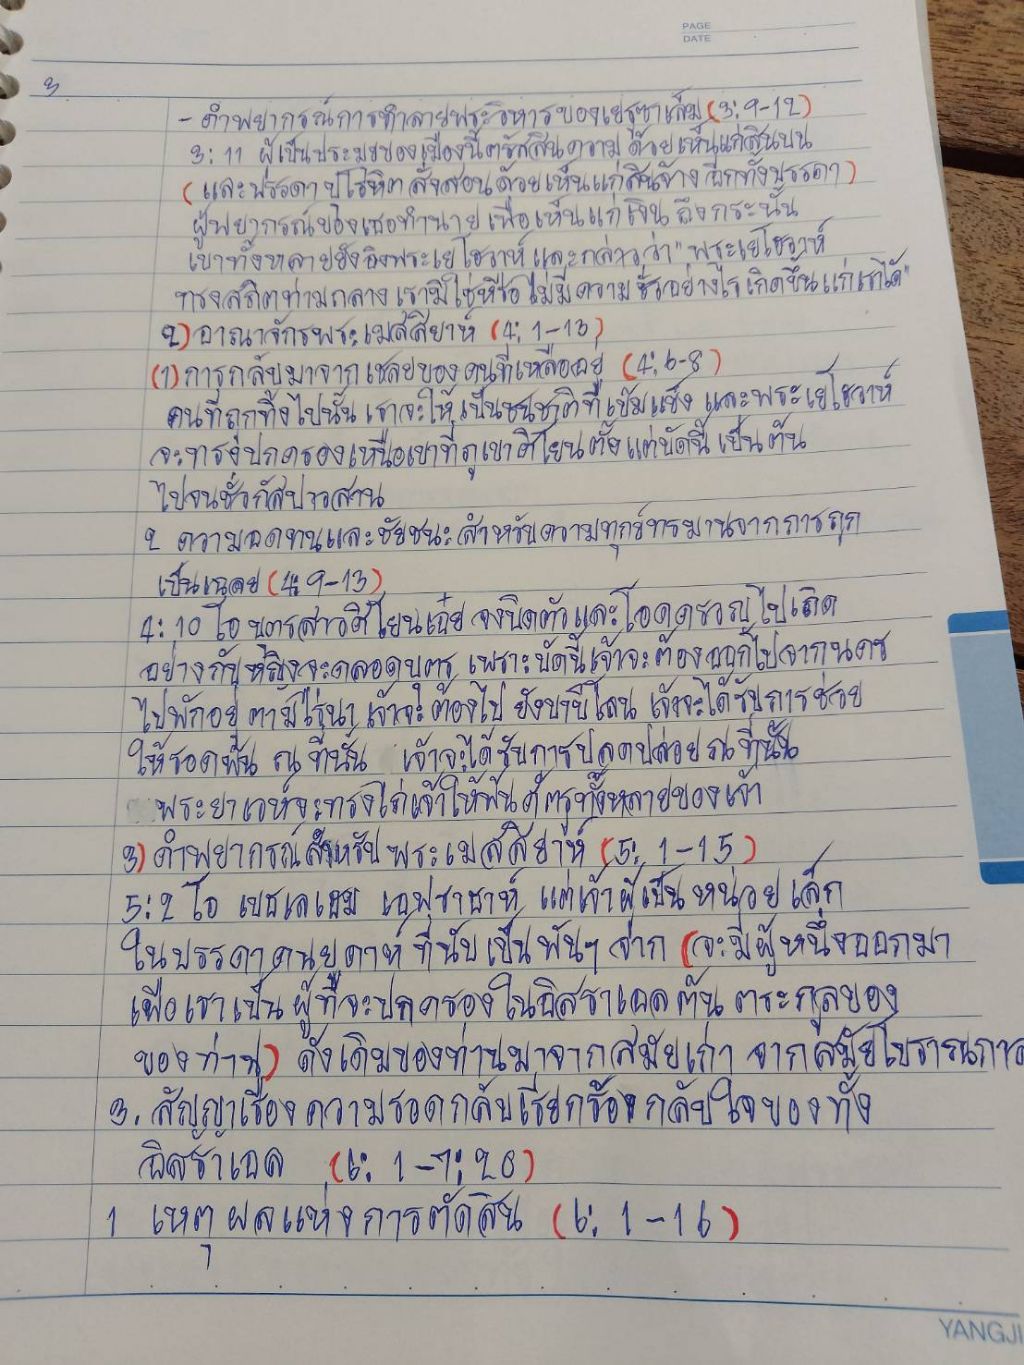 PAGE
DATE
3
- คำพยากรณ์การทำลายพระวิหารของเยรูซาเล็ม (3:9-12)
3:11 ผู้เป็นประมุขของเมืองนี้ตัดสินความด้วยเห็นแก่สินบน
(และบรรดาปุโรหิตสั่งสอนด้วยเห็นแก่สินจ้าง อีกทั้งบรรดา)
ผู้พยากรณ์ของเธอทำนายเพื่อเห็นแก่เงิน ถึงกระนั้น
เขาทั้งหลายยังอิงพระเยโฮวาห์ และกล่าวว่า "พระเยโฮวาห์
ทรงสถิตท่ามกลางเรามิใช่หรือ ไม่มีความชั่วอย่างไรเกิดขึ้นแก่เราได้"
2) อาณาจักรพระเมสสิยาห์ (4:1-13)
(1) การกลับมาจากเชลยของคนที่เหลืออยู่ (4:6-8)
คนที่ถูกทิ้งไปนั้น เราจะให้เป็นชนชาติที่เข้มแข็ง และพระเยโฮวาห์
จะทรงปกครองเหนือเขาที่ภูเขาศิโยนตั้งแต่บัดนี้เป็นต้น
ไปจนชั่วกัลปาวสาน
2 ความอดทนและชัยชนะสำหรับความทุกข์ทรมานจากการถูก
เป็นเฉลย (4:9-13)
4:10 โอ บุตรสาวศิโยนเอ๋ย จงบิดตัวและโอดครวญไปเถิด
อย่างกับหญิงจะคลอดบุตร เพราะบัดนี้เจ้าจะต้องออกไปจากนคร
ไปพักอยู่ตามไร่นา เจ้าจะต้องไปยังบาบิโลน เจ้าจะได้รับการช่วย
ให้รอดพ้น ณ ที่นั้น เจ้าจะได้รับการปลดปล่อย ณ ที่นั้น
พระยาเวห์จะทรงไถ่เจ้าให้พ้นศัตรูทั้งหลายของเจ้า
3) คำพยากรณ์สำหรับพระเมสสิยาห์ (5:1-15)
5:2 โอ เบธเลเฮม เอฟราธาห์ แต่เจ้าผู้เป็นหน่วยเล็ก
ในบรรดาคนยูดาห์ ที่นับเป็นพันๆ จาก (จะมีผู้หนึ่งออกมา
เพื่อเราเป็นผู้ที่จะปกครองในอิสราเอลต้นตระกูลของ
ของท่าน) ดั้งเดิมของท่านมาจากสมัยเก่า จากสมัยโบราณกาล
3. สัญญาเรื่องความรอดกลับเรียกร้องกลับใจของทั้ง
อิสราเอล (6:1-7:20)
1 เหตุผลแห่งการตัดสิน (6:1-16)
YANGJI